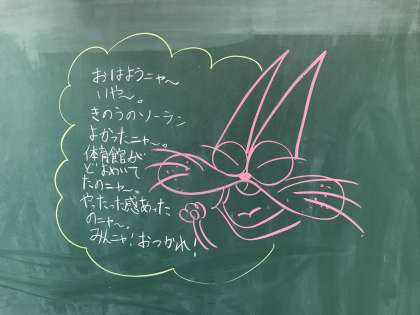 おはようニャ～
いや～。
きのうのソーラン
よかったニャ～。
体育館が
どよめいて
たのニャ～。
やったった感あった
のニャ～。
みんニャ!おつかれ!